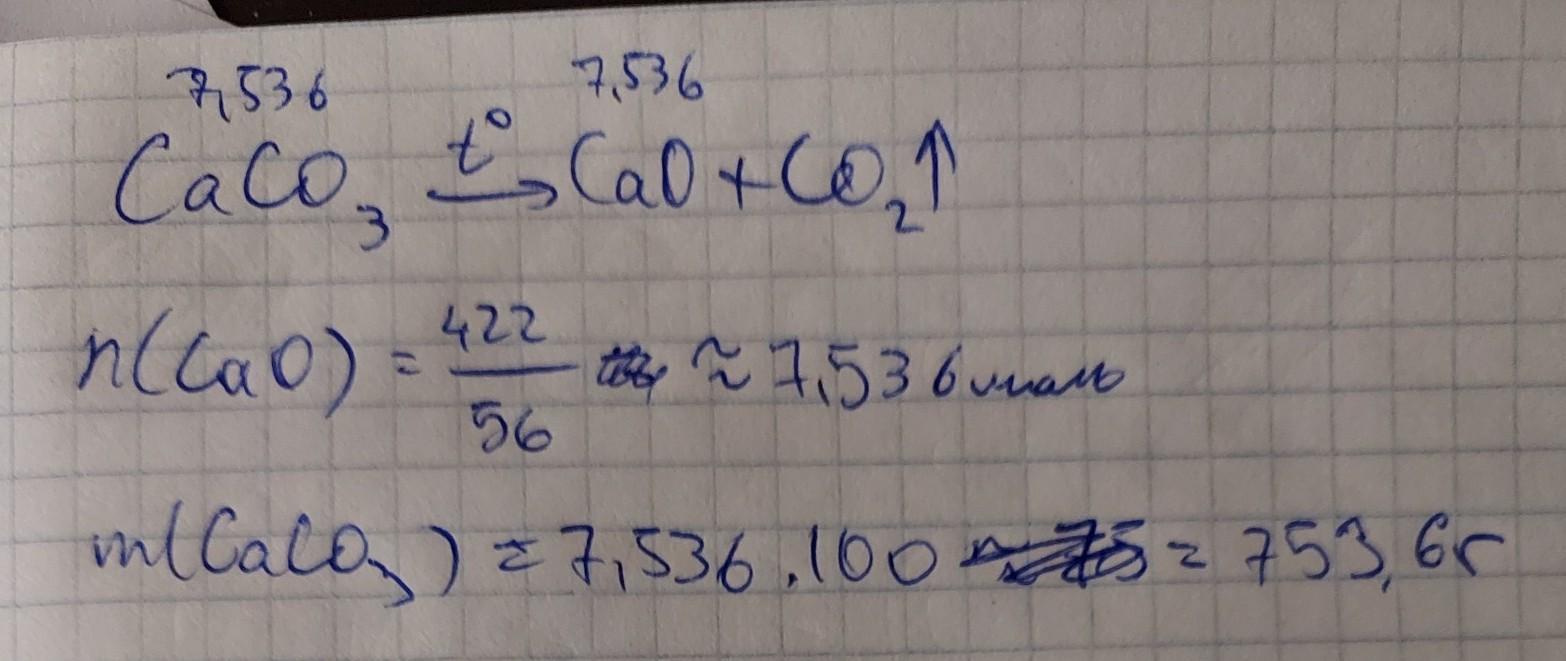 7,536 7,536
CaCO₃ t° → CaO + CO₂↑
n(CaO) = 422/56 ≈ 7,536 моль
m(CaCO₃) = 7,536 · 100 = 753,6г